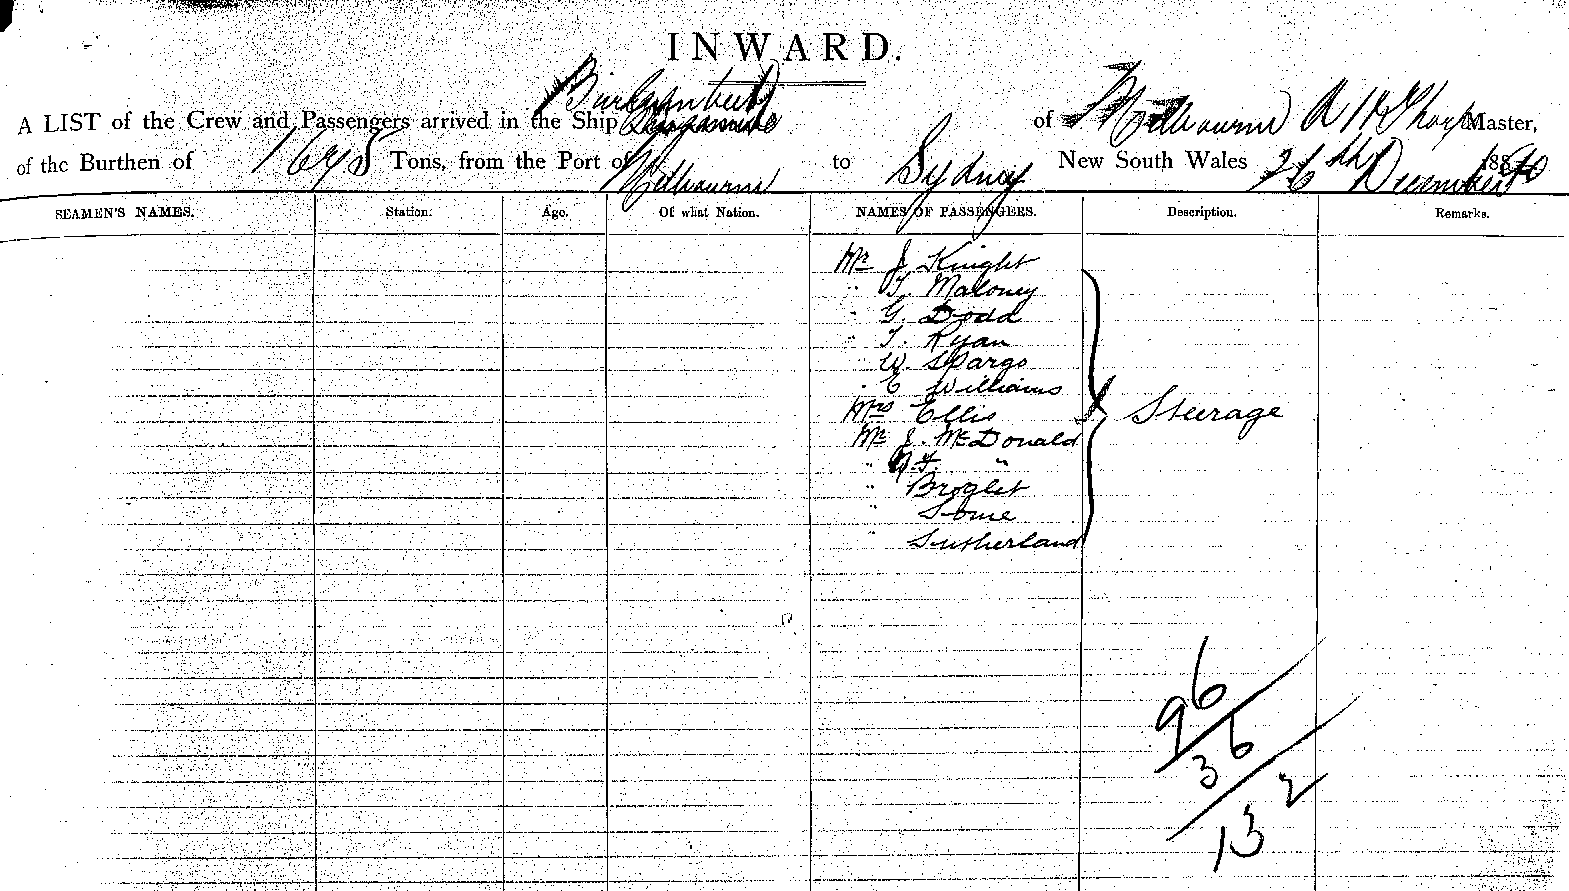 INWARD.
A LIST of the Crew and Passengers arrived in the Ship Burrumbeet of Melbourne A Master,
of the Burthen of Tons, from the Port of Melbourne to Sydney New South Wales 26th December
SEAMEN'S NAMES. Station. Age. Of what Nation. NAMES OF PASSENGERS. Description. Remarks.
Mr J. Knight
" T. Maloney
" G. Dodd
" T. Ryan
" W. Spargo
" C Williams
Mrs Ellis Steerage
Mr J. McDonald
" "
"
"
" Sutherland
96
36
132